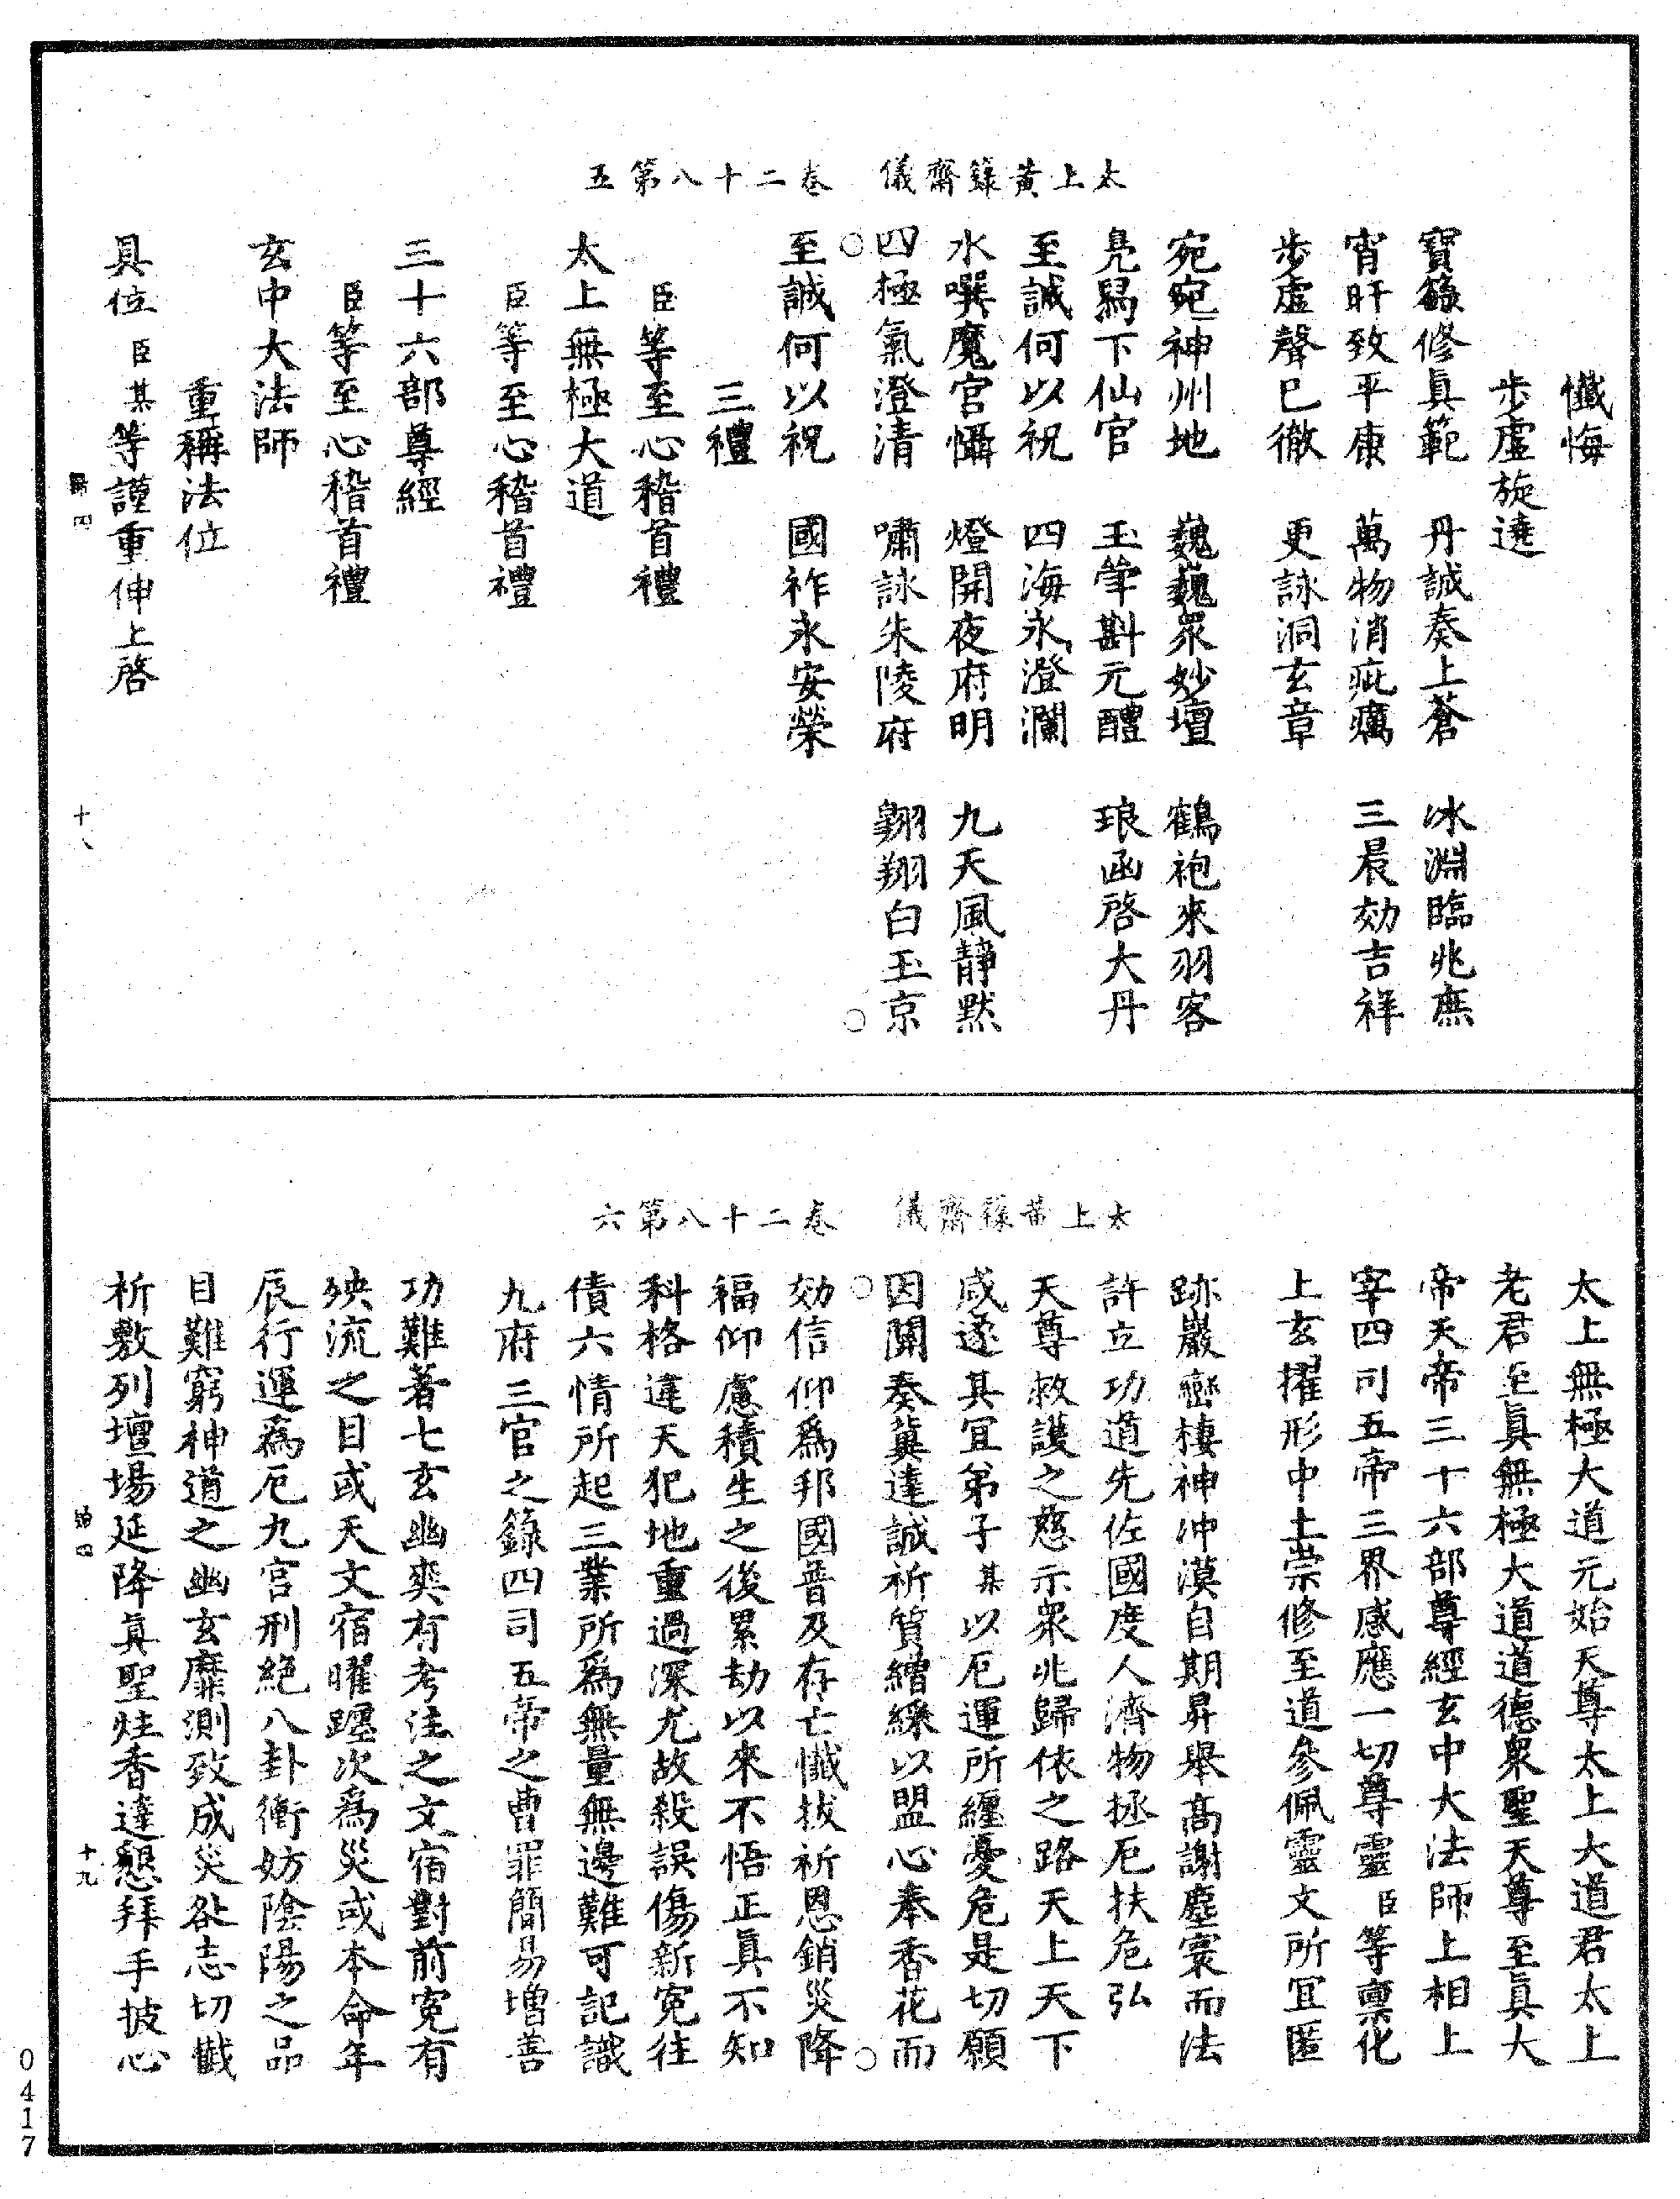 太上黃籙齋儀　卷二十八第五
懺悔
步虛旋遶
寶籙修眞範　丹誠奏上蒼　冰淵臨兆庶
宵旰致平康　萬物消疵癘　三晨効吉祥
步虛聲已徹　更詠洞玄章
宛宛神州地　巍巍眾妙壇　鶴袍來羽客
鳧舄下仙官　玉斝斟元醴　琅函啓大丹
至誠何以祝　四海永澄瀾
水噀魔官懾　燈開夜府明　九天風靜默
四極氣澄清　嘯詠朱陵府　翱翔白玉京
至誠何以祝　國祚永安榮
三禮
臣等至心稽首禮
太上無極大道
臣等至心稽首禮
三十六部尊經
臣等至心稽首禮
玄中大法師
重稱法位
具位臣某等謹重伸上啓
四
十八
太上黃籙齋儀　卷二十八第六
太上無極大道元始天尊太上大道君太上
老君至眞無極大道道德眾聖天尊至眞大
帝天帝三十六部尊經玄中大法師上相上
宰四司五帝三界感應一切尊靈臣等稟化
上玄擢形中土崇修至道參佩靈文所宜匿
跡巖巒棲神沖漠自期昇舉高謝塵寰而法
許立功道先佐國度人濟物拯厄扶危弘
天尊救護之慈示眾兆歸依之路天上天下
咸遂其宜弟子某以厄運所纏憂危是切願
因關奏冀達誠祈質繒綵以盟心奉香花而
効信仰爲邦國普及存亡懺拔祈恩銷災降
福仰慮積生之後累劫以來不悟正眞不知
科格違天犯地重過深尤故殺誤傷新寃往
債六情所起三業所爲無量無邊難可記識
九府三官之籙四司五帝之曹罪簡易增善
功難著七玄幽爽有考注之文宿對前寃有
殃流之目或天文宿曜躔次爲災或本命年
辰行運爲厄九宮刑絕八卦衝妨陰陽之品
目難窮神道之幽玄靡測致成災咎志切懺
祈敷列壇場延降眞聖炷香達懇拜手披心
四
十九
0417